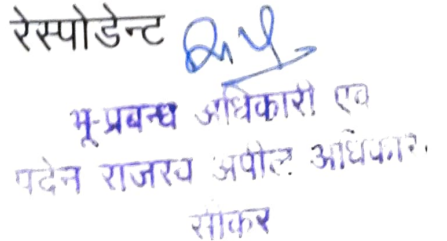 रेस्पोडेन्ट
भू-प्रबन्ध अधिकारी एव
पदेन राजस्व अपील अधिकारी,
सीकर